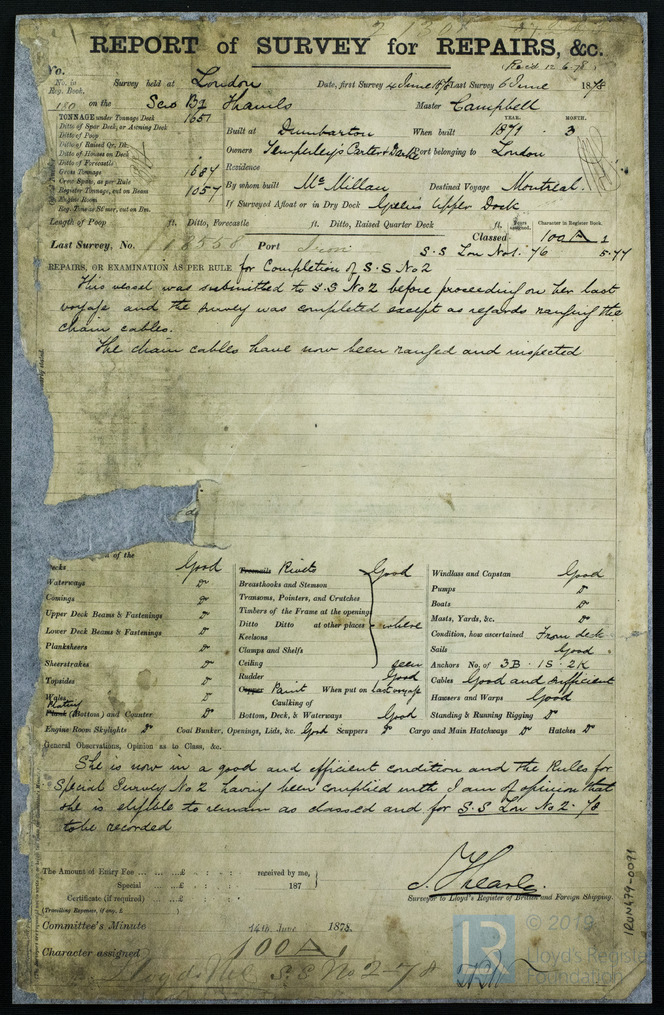 REPORT of SURVEY for REPAIRS, &c.
(Rec'd 12.6.78)
No.
No. in Reg. Book.
Survey held at London Date, first Survey 4 June 1878 Last Survey 6 June 1878
180 on the Scw Bg Thanes Master Campbell
TONNAGE under Tonnage Deck 1651
Ditto of Spar Deck, or Awning Deck
Ditto of Poop
Ditto of Raised Qr. Dk.
Ditto of Houses on Deck
Ditto of Forecastle
Gross Tonnage 1684
Crew Space, as per Rule
Register Tonnage, cut on Beam 1057
Engine Room
Reg. Ton as St'mer, cut on Bm.
Built at Dumbarton When built YEAR. 1871 MONTH. 3
Owners Temperley's Carter & Darke Port belonging to London
Residence
By whom built McMillan Destined Voyage Montreal.
If Surveyed Afloat or in Dry Dock Upper Dock
Length of Poop ft. Ditto, Forecastle ft. Ditto, Raised Quarter Deck ft.
Years assigned. Character in Register Book.
Classed 100 A 1
Last Survey, No. 18558 Port Iron S.S Lon No1. 76 5.77
REPAIRS, OR EXAMINATION AS PER RULE, for Completion of S.S No 2
This vessel was submitted to S.S No 2 before proceeding on her last
voyage and the survey was completed except as regards ranging the
chain cables.
The chain cables have now been ranged and inspected
of the
Decks Good
Waterways Do
Comings Do
Upper Deck Beams & Fastenings Do
Lower Deck Beams & Fastenings Do
Planksheers Do
Sheerstrakes Do
Topsides Do
Wales Do
Plating
Plank (Bottom) and Counter Do
Treenails Rivets Good
Breasthooks and Stemson
Transoms, Pointers, and Crutches
Timbers of the Frame at the openings
Ditto Ditto at other places where
Keelsons
Clamps and Shelfs
Ceiling seen
Rudder Good
Copper Paint When put on last voyage
Caulking of
Bottom, Deck, & Waterways Good
Windlass and Capstan Good
Pumps Do
Boats Do
Masts, Yards, &c. Do
Condition, how ascertained From deck
Sails Good
Anchors No. of 3B . 1S . 2K
Cables Good and sufficient
Hawsers and Warps Good
Standing & Running Rigging Do
Engine Room Skylights Do Coal Bunker, Openings, Lids, &c. Good Scuppers Do Cargo and Main Hatchways Do Hatches Do
General Observations, Opinion as to Class, &c.
She is now in a good and efficient condition and the Rules for
Special Survey No 2 having been complied with I am of opinion that
she is eligible to remain as classed and for S.S Lon No 2. 78
to be recorded
The Amount of Entry Fee ... ... £ : : received by me,
Special ... .. £ : : 187
Certificate (if required) ... £ : :
(Travelling Expenses, if any, £ )
Surveyor to Lloyd's Register of British and Foreign Shipping.
Committee's Minute 14th June 1878.
Character assigned 100 A 1
S.S No 2-78
IRON479-0091
LR
© 2019
Lloyd's Register
Foundation